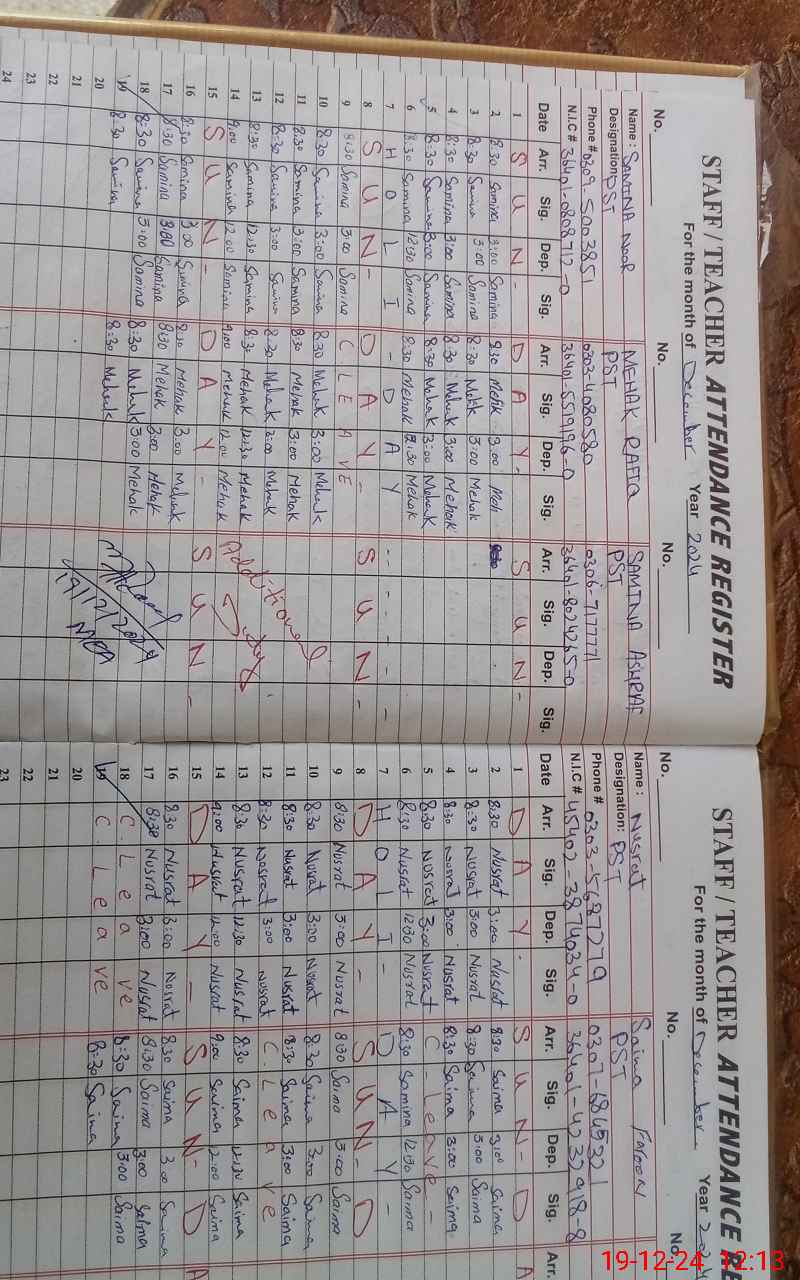 STAFF / TEACHER ATTENDANCE REGISTER
For the month of December Year 2024
No. No. No.
Name : SAMINA NOOR MEHAK RAFIQ SAMINA ASHRAF
Designation: PST PST PST
Phone # 0309-5003851 0303-4080580 0306-7177771
N.I.C #
Date Arr. Sig. Dep. Sig. Arr. Sig. Dep. Sig. Arr. Sig. Dep. Sig.
1 S U N - D A Y - S U N -
2 8:30 Samina 3:00 Samina 8:30 3:00
3 8:30 Samina 3:00 Samina 8:30 Mehak 3:00 Mehak
4 8:30 Samina 3:00 Samina 8:30 Mehak 3:00 Mehak
5 8:30 Samina 3:00 Samina 8:30 Mehak 3:00 Mehak
6 8:30 Samina 12:30 Samina 8:30 Mehak 12:30 Mehak
7 H O L I - D A Y - - - -
8 S U N - D A Y - S U N -
9 8:30 Samina 3:00 Samina C LEAVE
10 8:30 Samina 3:00 Samina 8:30 Mehak 3:00 Mehak
11 8:30 Samina 3:00 Samina 8:30 Mehak 3:00 Mehak
12 8:30 Samina 3:00 Samina 8:30 Mehak 3:00 Mehak
13 8:30 Samina 12:30 Samina 8:30 Mehak 12:30 Mehak
14 9:00 Samina 12:00 Samina 9:00 Mehak 12:00 Mehak
Additional
15 S U N - D A Y - S U N -
16 8:30 Samina 3:00 Samina 8:30 Mehak 3:00 Mehak
17 8:30 Samina 3:00 Samina 8:30 Mehak 3:00 Mehak
18 8:30 Samina 3:00 Samina 8:30 Mehak 3:00 Mehak
19 8:30 Samina 8:30 Mehak
19/12/2024
MEA
20
21
22
23
24
STAFF / TEACHER ATTENDANCE RE
For the month of December Year 2024
No. No. No.
Name : Nusrat Saima
Designation: PST PST
Phone # 0303-5687279
N.I.C #
Date Arr. Sig. Dep. Sig. Arr. Sig. Dep. Sig. Arr.
1 D A Y - S U N - D A
2 8:30 Nusrat 3:00 Nusrat 8:30 Saima 3:00 Saima
3 8:30 Nusrat 3:00 Nusrat 8:30 Saima 3:00 Saima
4 8:30 Nusrat 3:00 Nusrat 8:30 Saima 3:00 Saima
5 8:30 Nusrat 3:00 Nusrat C - Leave -
6 8:30 Nusrat 12:30 Nusrat 8:30 Samina 12:30 Saima
7 H O L I - D A Y -
8 D A Y - S U N - D
9 8:30 Nusrat 3:00 Nusrat 8:30 Saima 3:00 Saima
10 8:30 Nusrat 3:00 Nusrat 8:30 Saima 3:00 Saima
11 8:30 Nusrat 3:00 Nusrat 8:30 Saima 3:00 Saima
12 8:30 Nusrat 3:00 Nusrat C. Leave
13 8:30 Nusrat 12:30 Nusrat 8:30 Saima 12:30 Saima
14 9:00 Nusrat 12:00 Nusrat 9:00 Saima 12:00 Saima
15 D A Y - S U N - D A
16 8:30 Nusrat 3:00 Nusrat 8:30 Saima 3:00 Saima
17 8:30 Nusrat 3:00 Nusrat 8:30 Saima 3:00 Saima
18 C. Leave 8:30 Saima 3:00 Saima
19 C Leave 8:30 Saima
20
21
22
23
19-12-24 12:13